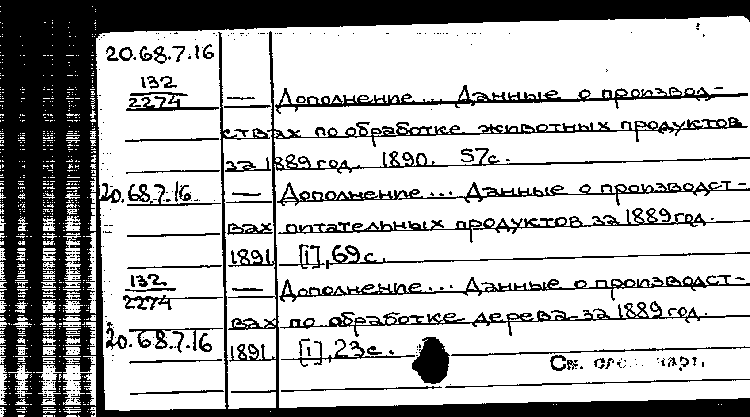 20.68.7.16
132
2274 — Дополнение... Данные о производ-
ствах по обработке животных продуктов
за 1889 год. 1890. 57с.
20.68.7.16 — Дополнение... Данные о производст-
вах питательных продуктов за 1889 год.
1891. [1], 69с.
132
2274 — Дополнение... Данные о производст-
вах по обработке дерева за 1889 год.
20.68.7.16 1891. [1], 23с.
См.